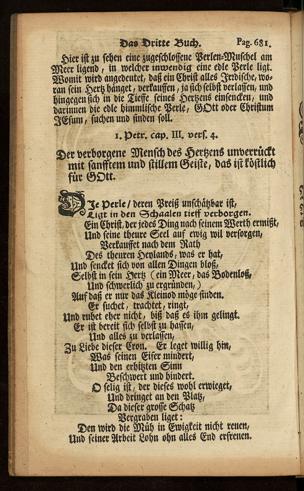 Das Dritte Buch. Pag. 681.
Hier ist zu sehen eine zugeschlossene Perlen-Muschel am
Meer ligend, in welcher inwendig eine edle Perle ligt.
Womit wird angedeutet, daß ein Christ alles Irrdische, wo-
ran sein Hertz hänget, verkauffen, ja sich selbst verlassen, und
hingegen sich in die Tieffe seines Hertzens einsencken, und
darinnen die edle himmlische Perle, GOtt oder Christum
JEsum, suchen und finden soll.
1. Petr. cap. III. vers. 4.
Der verborgene Mensch des Hertzens unverrückt
mit sanfftem und stillem Geiste, das ist köstlich
für GOtt.
DJe Perle/ deren Preiß unschätzbar ist,
Ligt in den Schaalen tieff verborgen.
Ein Christ, der jedes Ding nach seinem Werth ermißt,
Und seine theure Seel auf ewig wil versorgen,
Verkaufft nach dem Rath
Des theuren Heylands, was er hat,
Und sencket sich von allen Dingen bloß,
Selbst in sein Hertz (ein Meer, das Bodenloß,
Und schwerlich zu ergründen,)
Auf daß er nur das Kleinod möge finden.
Er suchet, trachtet, ringt,
Und ruhet eher nicht, biß daß es ihm gelingt.
Er ist bereit sich selbst zu hassen,
Und alles zu verlassen,
Zu Liebe dieser Cron. Er leget willig hin,
Was seinen Eifer mindert,
Und den erhitzten Sinn
Beschwert und hindert.
O selig ist, der dieses wohl erwieget,
Und dringet an den Platz,
Da dieser grosse Schatz
Vergraben liget:
Den wird die Müh in Ewigkeit nicht reuen,
Und seiner Arbeit Lohn ohn alles End erfreuen.